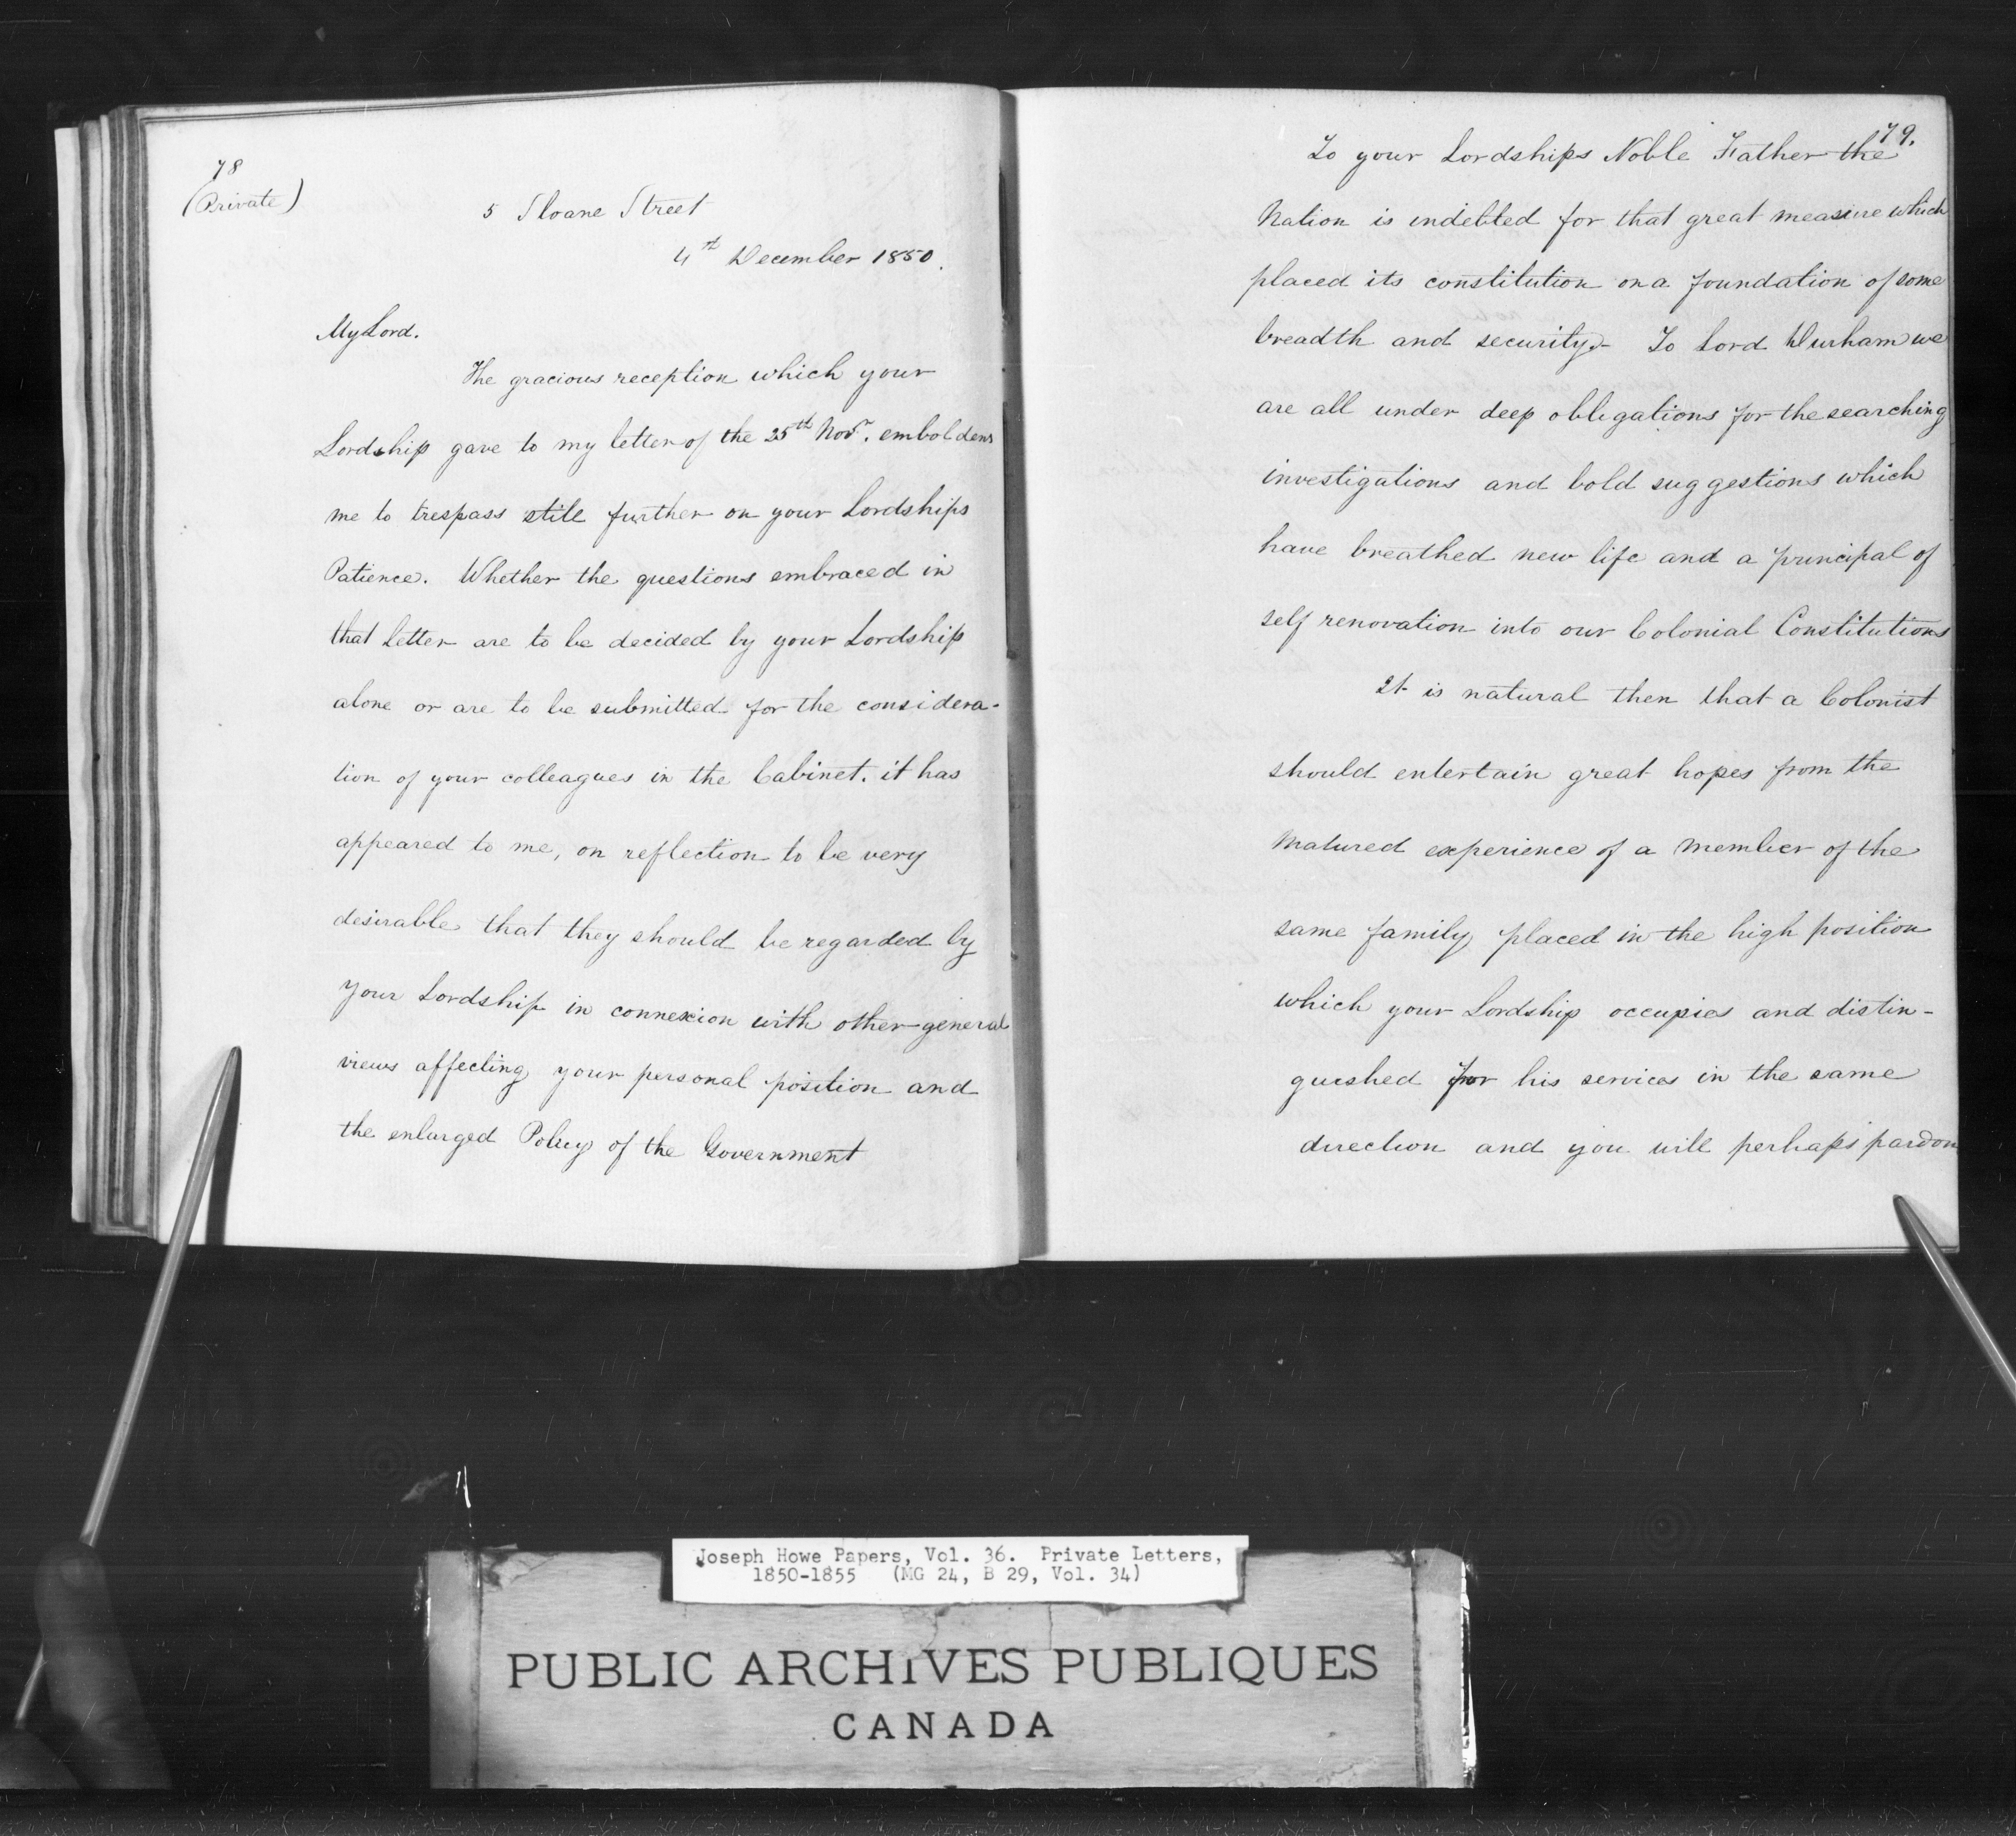 78
(Private)
5 Sloane Street
4th December 1850.
My Lord.
The gracious reception which your
Lordship gave to my letter of the 25th Novr. emboldens
me to trespass still further on your Lordships
Patience. Whether the questions embraced in
that Letter are to be decided by your Lordship
alone or are to be submitted for the considera-
tion of your colleagues in the Cabinet. it has
appeared to me, on reflection to be very
desirable that they should be regarded by
your Lordship in connexion with other general
views affecting your personal position and
the enlarged Policy of the Government
79.
To your Lordships Noble Father the
Nation is indebted for that great measure which
placed its constitution on a foundation of some
breadth and security. To Lord Durham we
are all under deep obligations for the searching
investigations and bold suggestions which
have breathed new life and a principal of
self renovation into our Colonial Constitutions
It is natural then that a Colonist
should entertain great hopes from the
Matured experience of a Member of the
same family placed in the high position
which your Lordship occupies and distin-
gueshed for his services in the same
direction and you will perhaps pardon
Joseph Howe Papers, Vol. 36. Private Letters,
1850-1855 (MG 24, B 29, Vol. 34)
PUBLIC ARCHIVES PUBLIQUES
CANADA